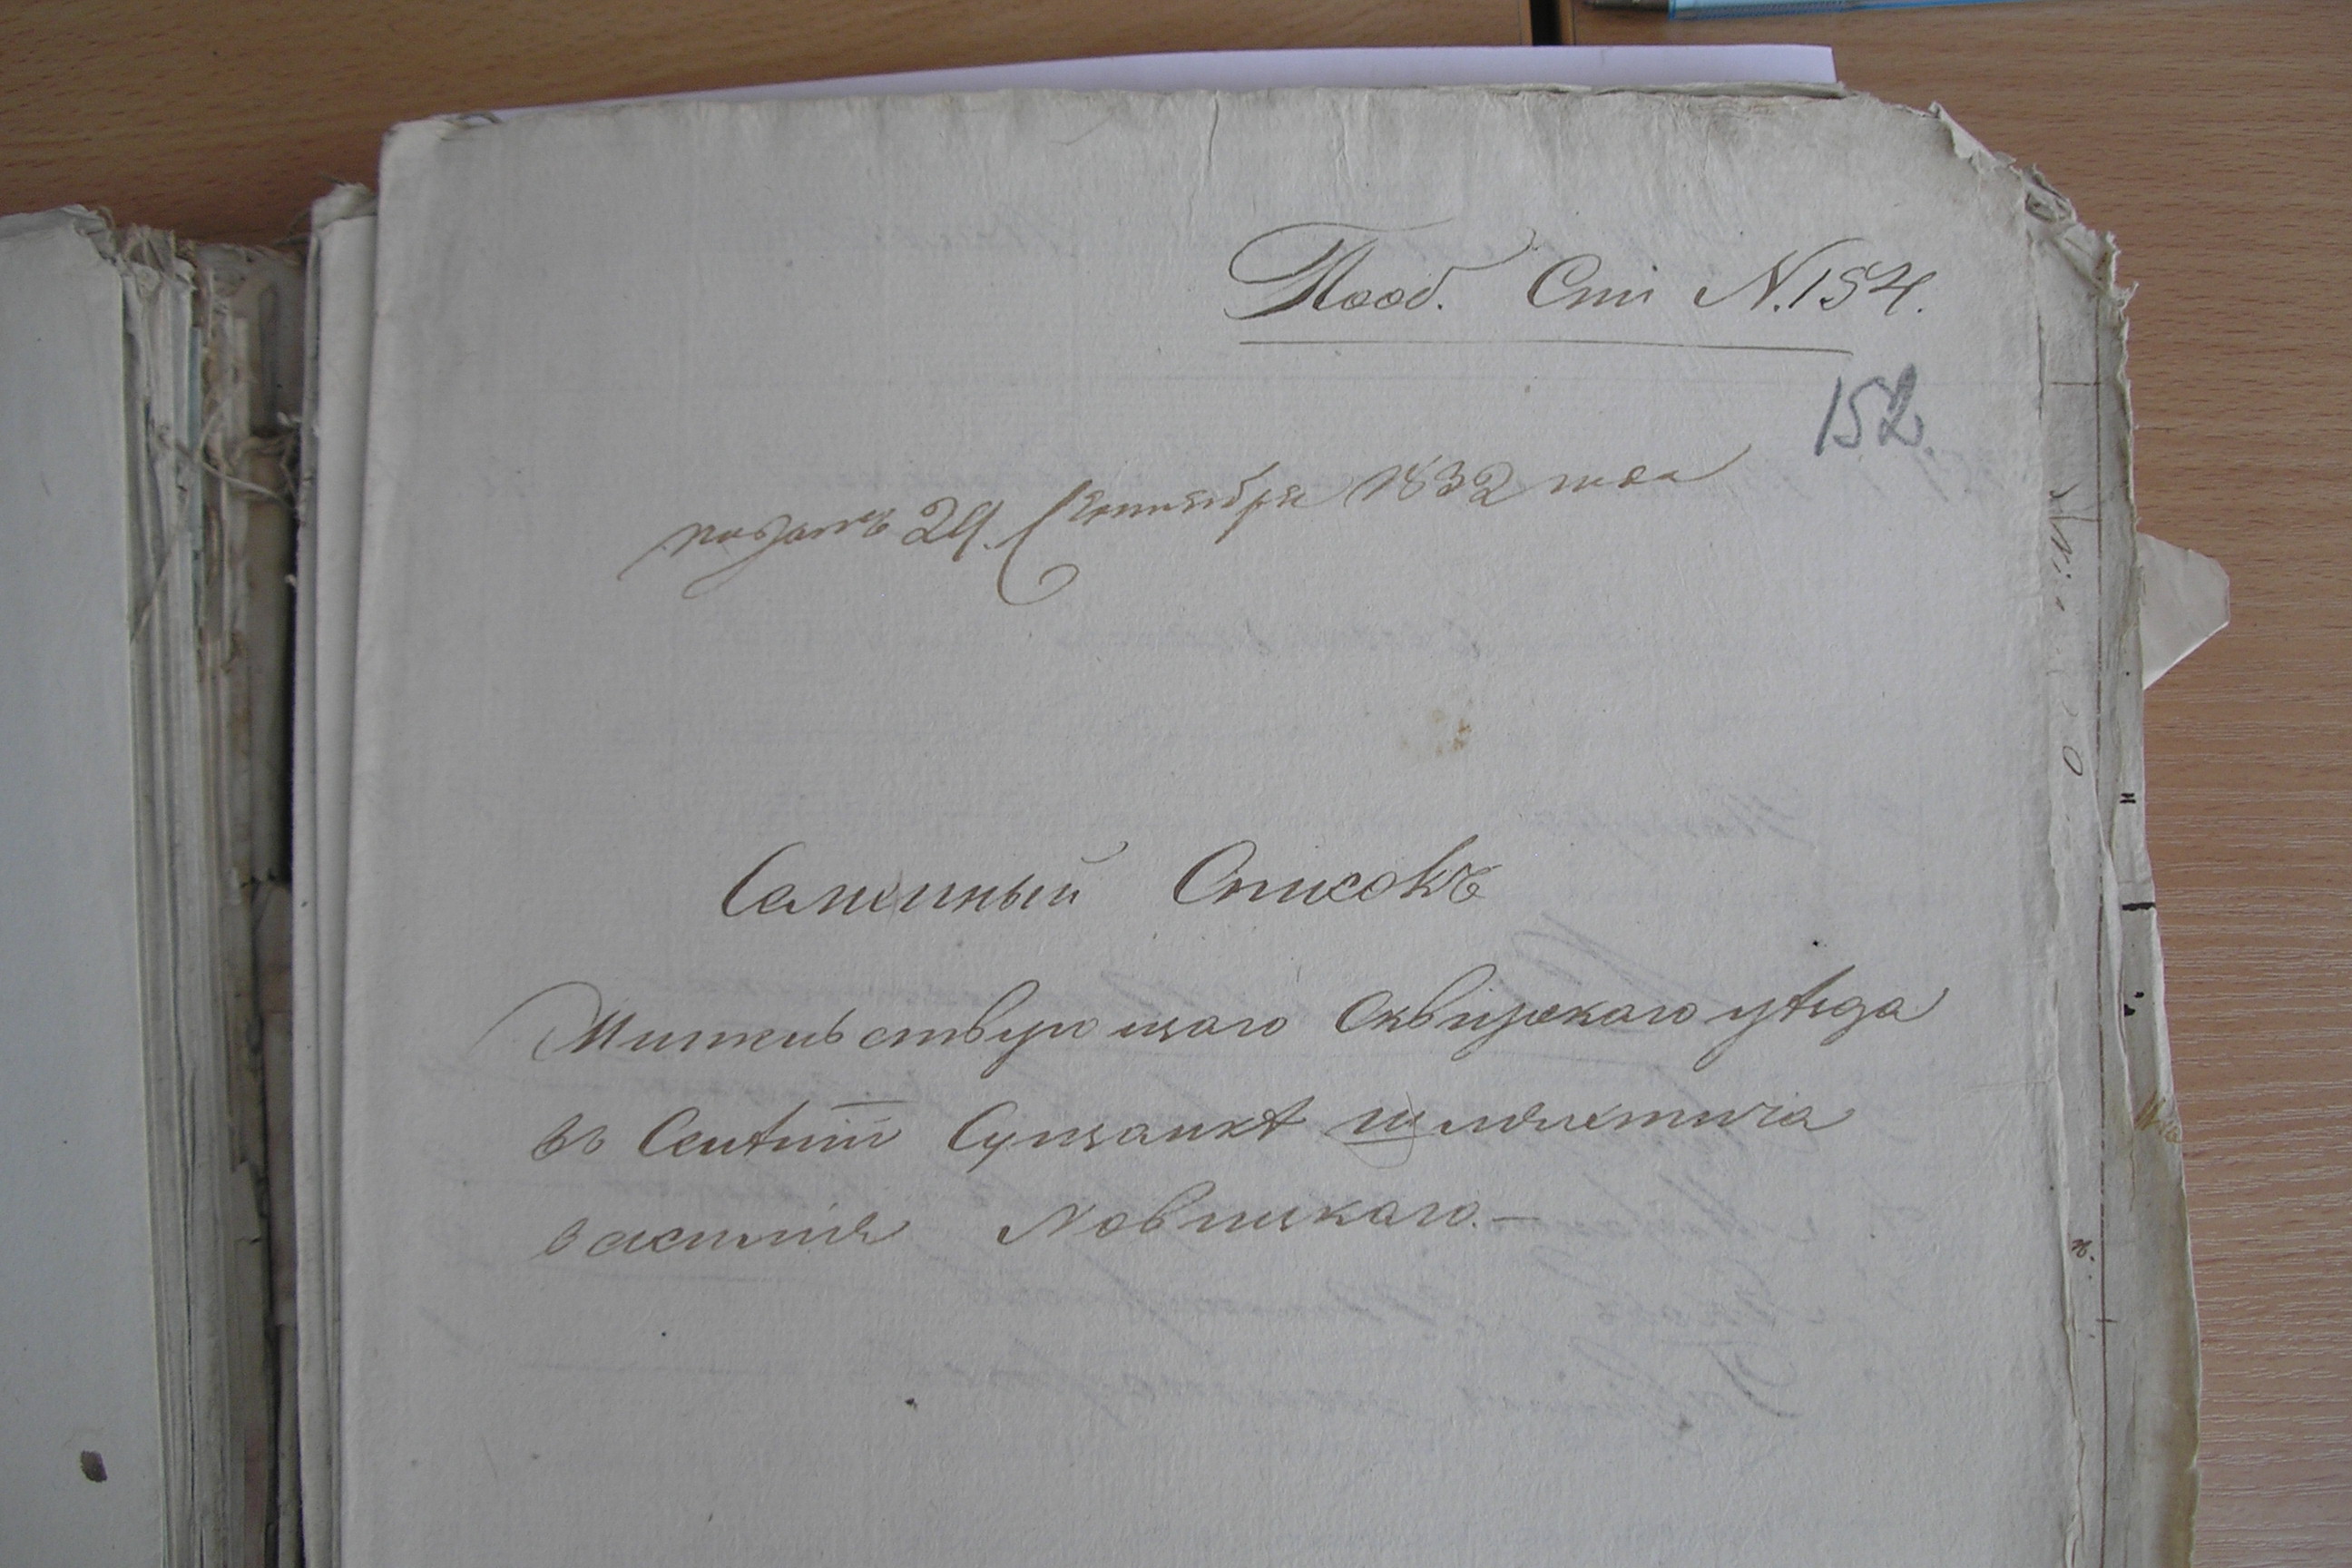 Пооб. Сти N. 154.
152.
поданъ 29. Сентября 1832 года
Семейный Списокъ
Жительствующаго Сквирскаго уѣзда
въ Селѣнiи Сущанкѣ шляхтича
василия Новицкаго. —